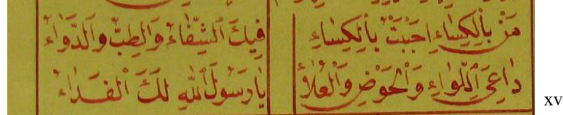 مَنْ بِالْكِسَاءِ اجَبَتَ بِالْكِسَاءِ فِيكَ الشِّفَاءُ وَالطِّبُّ وَالدَّوَاءُ
دَاعِيَ اللِّوَاءِ وَالْحَوْضِ وَالْعُلَاءِ يَا رَسُولَ اللهِ لَكَ الْفَدَاءُ
xv